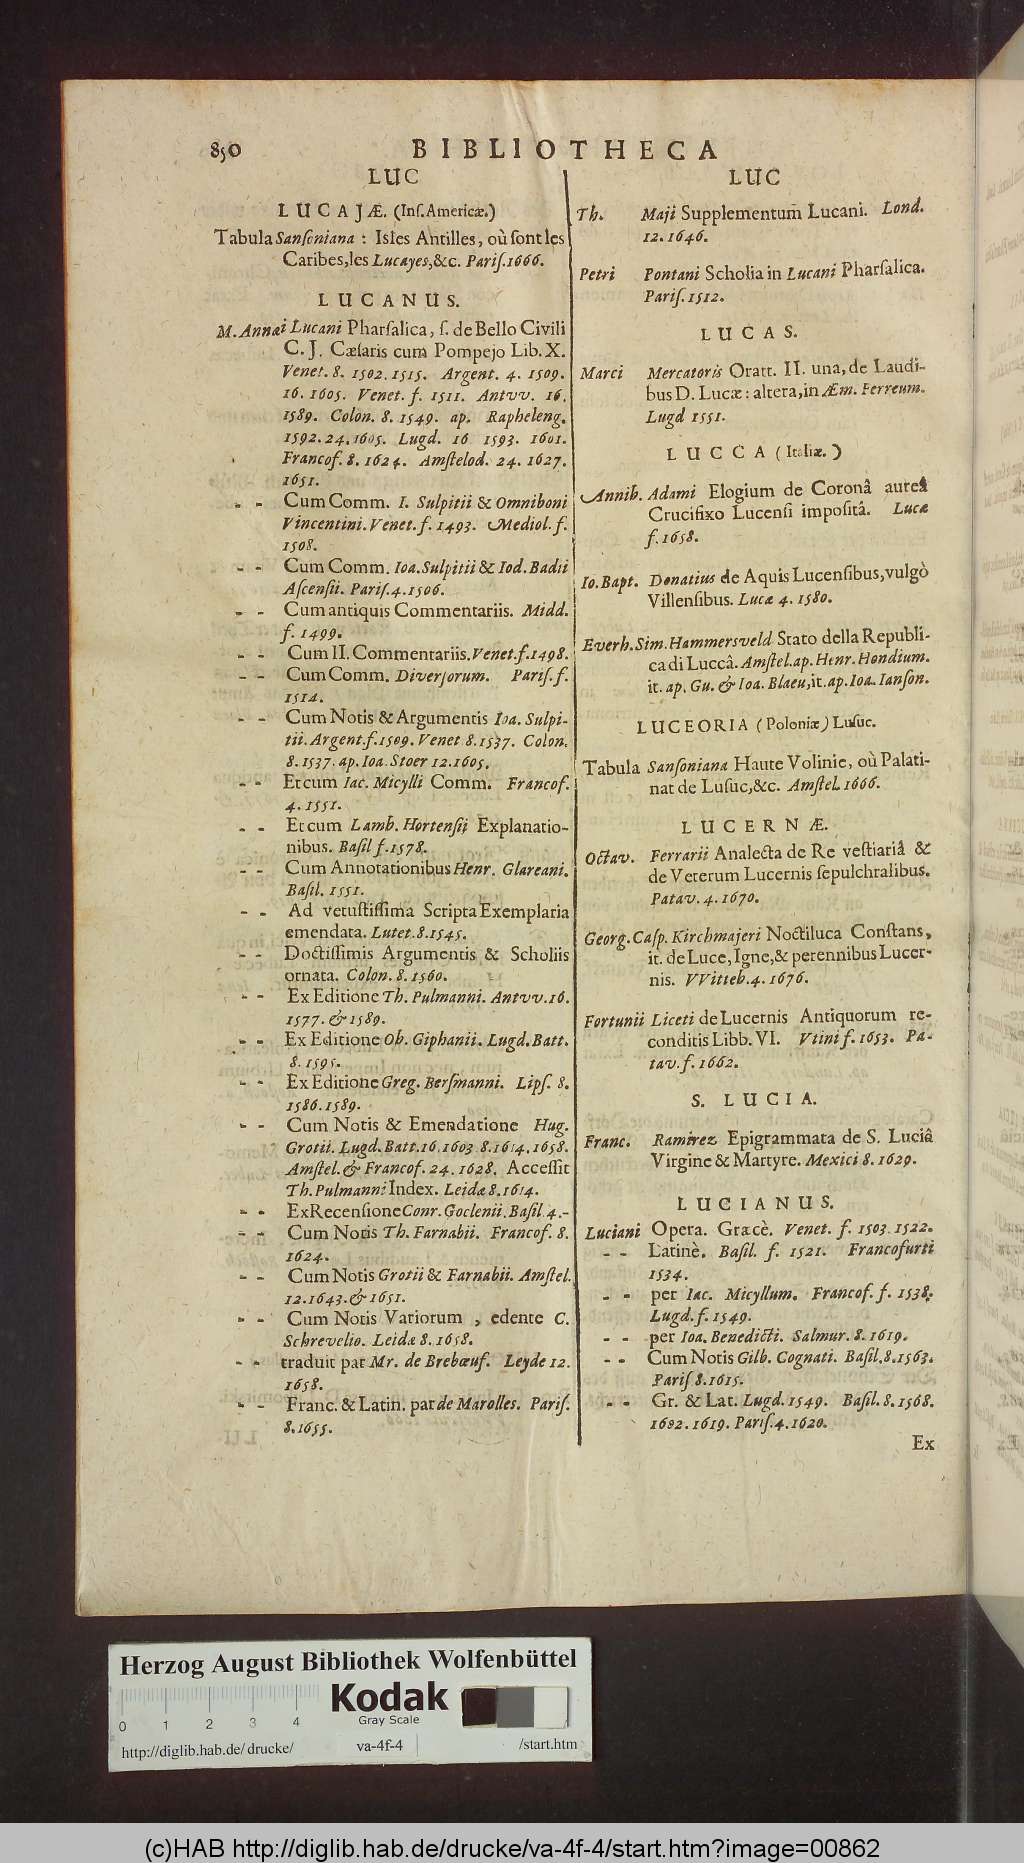 850 BIBLIOTHECA
LUC
LUCAJÆ. (Inſ. Americæ.)
Tabula Sanſoniana : Isles Antilles, où ſont les
Caribes, les Lucayes, &c. Pariſ. 1666.
LUCANUS.
M. Annæi Lucani Pharſalica, ſ. de Bello Civili
C. J. Cæſaris cum Pompejo Lib. X.
Venet. 8. 1502. 1515. Argent. 4. 1509.
16. 1605. Venet. f. 1511. Antvv. 16.
1589. Colon. 8. 1549. ap. Rapheleng.
1592. 24. 1605. Lugd. 16 1593. 1601.
Francof. 8. 1624. Amſtelod. 24. 1627.
1651.
- - Cum Comm. I. Sulpitii & Omniboni
Vincentini. Venet. f. 1493. Mediol. f.
1508.
- - Cum Comm. Ioa. Sulpitii & Iod. Badii
Aſcenſii. Pariſ. 4. 1506.
- - Cum antiquis Commentariis. Midd.
f. 1499.
- - Cum II. Commentariis. Venet. f. 1498.
- - Cum Comm. Diverſorum. Pariſ. f.
1514.
- - Cum Notis & Argumentis Ioa. Sulpi-
tii. Argent. f. 1509. Venet 8. 1537. Colon.
8. 1537. ap. Ioa. Stoer 12. 1605.
- - Et cum Iac. Micylli Comm. Francof.
4. 1551.
- - Et cum Lamb. Hortenſii Explanatio-
nibus. Baſil f. 1578.
- - Cum Annotationibus Henr. Glareani.
Baſil. 1551.
- - Ad vetuſtiſſima Scripta Exemplaria
emendata. Lutet. 8. 1545.
- - Doctiſſimis Argumentis & Scholiis
ornata. Colon. 8. 1560.
- - Ex Editione Th. Pulmanni. Antvv. 16.
1577. & 1589.
- - Ex Editione Ob. Giphanii. Lugd. Batt.
8. 1595.
- - Ex Editione Greg. Berſmanni. Lipſ. 8.
1586. 1589.
- - Cum Notis & Emendatione Hug.
Grotii. Lugd. Batt. 16. 1603 8. 1614. 1658.
Amſtel. & Francof. 24. 1628. Acceſſit
Th. Pulmanni Index. Leidæ 8. 1614.
- - Ex Recenſione Conr. Goclenii. Baſil 4. -
- - Cum Notis Th. Farnabii. Francof. 8.
1624.
- - Cum Notis Grotii & Farnabii. Amſtel.
12. 1643. & 1651.
- - Cum Notis Variorum , edente C.
Schrevelio. Leidæ 8. 1658.
- - traduit par Mr. de Brebœuf. Leyde 12.
1658.
- - Franc. & Latin. par de Marolles. Pariſ.
8. 1655.
LUC
Th. Maji Supplementum Lucani. Lond.
12. 1646.
Petri Pontani Scholia in Lucani Pharſalica.
Pariſ. 1512.
LUCAS.
Marci Mercatoris Oratt. II. una, de Laudi-
bus D. Lucæ : altera, in Æm. Ferreum.
Lugd 1551.
LUCCA (Italiæ.)
Annib. Adami Elogium de Coronâ aureâ
Crucifixo Lucenſi impoſitâ. Lucæ
f. 1658.
Io. Bapt. Donatius de Aquis Lucenſibus, vulgò
Villenſibus. Lucæ 4. 1580.
Everh. Sim. Hammersveld Stato della Republi-
ca di Luccâ. Amſtel. ap. Henr. Hondium.
it. ap. Gu. & Ioa. Blaeu, it. ap. Ioa. Ianſon.
LUCEORIA (Poloniæ) Luſuc.
Tabula Sanſoniana Haute Volinie, où Palati-
nat de Luſuc, &c. Amſtel. 1666.
LUCERNÆ.
Octav. Ferrarii Analecta de Re veſtiariâ &
de Veterum Lucernis ſepulchralibus.
Patav. 4. 1670.
Georg. Caſp. Kirchmajeri Noctiluca Conſtans,
it. de Luce, Igne, & perennibus Lucer-
nis. VVitteb. 4. 1676.
Fortunii Liceti de Lucernis Antiquorum re-
conditis Libb. VI. Vtini f. 1653. Pa-
tav. f. 1662.
S. LUCIA.
Franc. Ramirez Epigrammata de S. Luciâ
Virgine & Martyre. Mexici 8. 1629.
LUCIANUS.
Luciani Opera. Græcè. Venet. f. 1503 1522.
- - Latinè. Baſil. f. 1521. Francofurti
1534.
- - per Iac. Micyllum. Francof. f. 1538.
Lugd. f. 1549.
- - per Ioa. Benedicti. Salmur. 8. 1619.
- - Cum Notis Gilb. Cognati. Baſil. 8. 1563.
Pariſ 8. 1615.
- - Gr. & Lat. Lugd. 1549. Baſil. 8. 1568.
1602. 1619. Pariſ. 4. 1620.
Ex
Herzog August Bibliothek Wolfenbüttel
Kodak
Gray Scale
0 1 2 3 4
http://diglib.hab.de/drucke/ va-4f-4 /start.htm
(c)HAB http://diglib.hab.de/drucke/va-4f-4/start.htm?image=00862